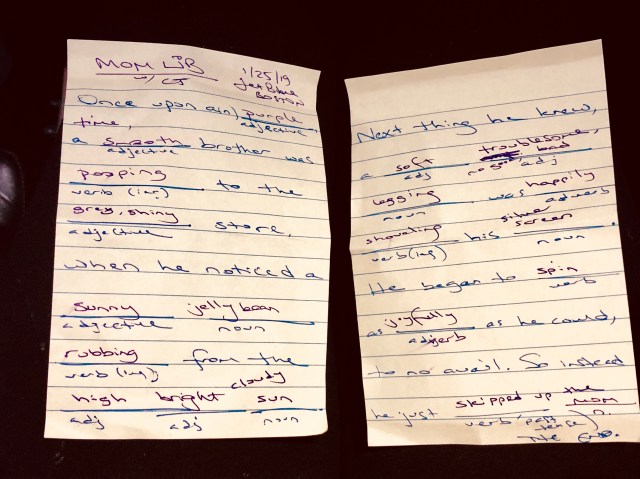 MOM LIB
w/ CJ
1/25/19
Jet Blue
BOSTON
Once upon a(n) purple
adjective
time,
a smooth brother was
adjective
pooping to the
verb (ing)
grey, shiny store,
adjective
when he noticed a
sunny jellybean
adjective noun
rubbing from the
verb (ing)
cloudy
high bright sun
adj adj noun
Next thing he knew,
a soft troublesome,
adj no good bad adj
legging was happily
noun adverb
shoveling his silver screen.
verb (ing) noun
He began to spin
verb
as joyfully as he could,
adverb
to no avail. So instead
he just skipped up the mom
verb (past tense) n.
The End.